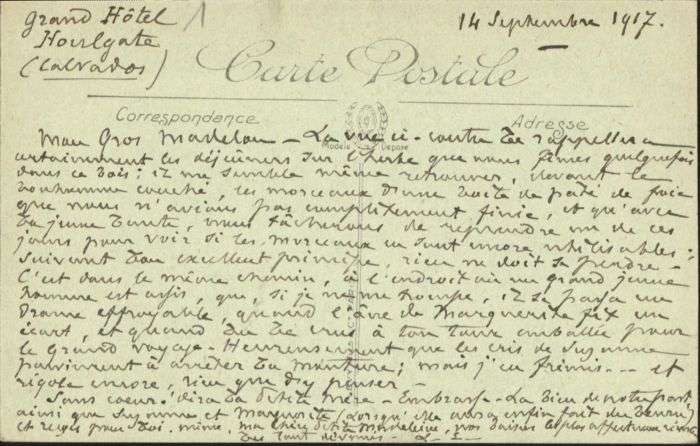 Grand Hôtel
Houlgate
(Calvados)
1
14 Septembre 1917.
Carte Postale
Correspondance
Adresse
Modèle Déposé
Mon Gros Madelon - La vue ci-contre te rappellera
certainement les déjeuners sur l'herbe que nous fîmes quelquefois
dans ce bois : il me semble même retrouver, devant le
bonhomme couché, les morceaux d'une boîte de pâté de foie
que nous n'avions pas complètement finie, et qu'avec
ta jeune tante, nous tâcherons de reprendre un de ces
jours pour voir si les morceaux en sont encore utilisables :
suivant ton excellent principe, rien ne doit se perdre -
C'est dans le même chemin, à l'endroit où un grand jeune
homme est assis, que, si je ne me trompe, il se passa un
drame effroyable, quand l'âne de Marguerite fit un
écart, et quand tu te crus à ton tour emballée pour
le Grand voyage - Heureusement que les cris de Suzanne
parvinrent à arrêter ta monture ; mais j'en frémis --- et
rigole encore, rien que d'y penser -
Sans coeur ! dira ta petite Mère - Embrasse-La bien de notre part,
ainsi que Suzanne et Marguerite (lorsqu'elle aura enfin fait du beurre)
et reçois pour toi-même, ma chère petite Madeleine, nos baisers les plus affectueux
de tout dévoués -